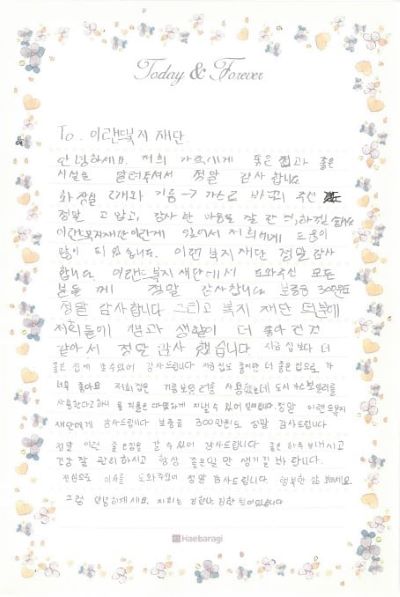 Today & Forever
To. 이랜드복지 재단
안녕하세요. 저희 가족에게 좋은 집과 좋은
시설로 정말 감사 합니다
화장실 2개와 기름→가스로 바꿔 주신
정말 고맙고, 감사한 마음을 잘
도움이
많이 되었습니다. 이랜드복지재단 정말 감사
합니다. 이랜드복지재단에서 도와주신 모든
분들께 정말 감사합니다 보증금 300만원도
정말 감사합니다 그리고 복지 재단 덕분에
저희들이 생활이 더 좋아진건
같아서 정말 감사 했습니다 지금 집보다 더
좋은 집에 감사드립니다 지금 집도 좋지만 더 좋은 집으로 가
너무 좋아요 저희집은 기름보일러를 사용했는데 도시가스보일러를
사용한다고하니 올 겨울은 따뜻하게 지낼 수 있어 정말 이랜드복지
재단에게 감사드립니다 보증금 300만원도 정말 감사드립니다
정말 이런 좋은집을 갈 수 있어 감사드립니다 좋은 하루 보내시고
건강 잘 관리하시고 항상 좋은일만 생기길 바랍니다.
진심으로 도와주셔서 정말 감사드립니다 행복한
그럼 안녕히계세요.
Haebaragi